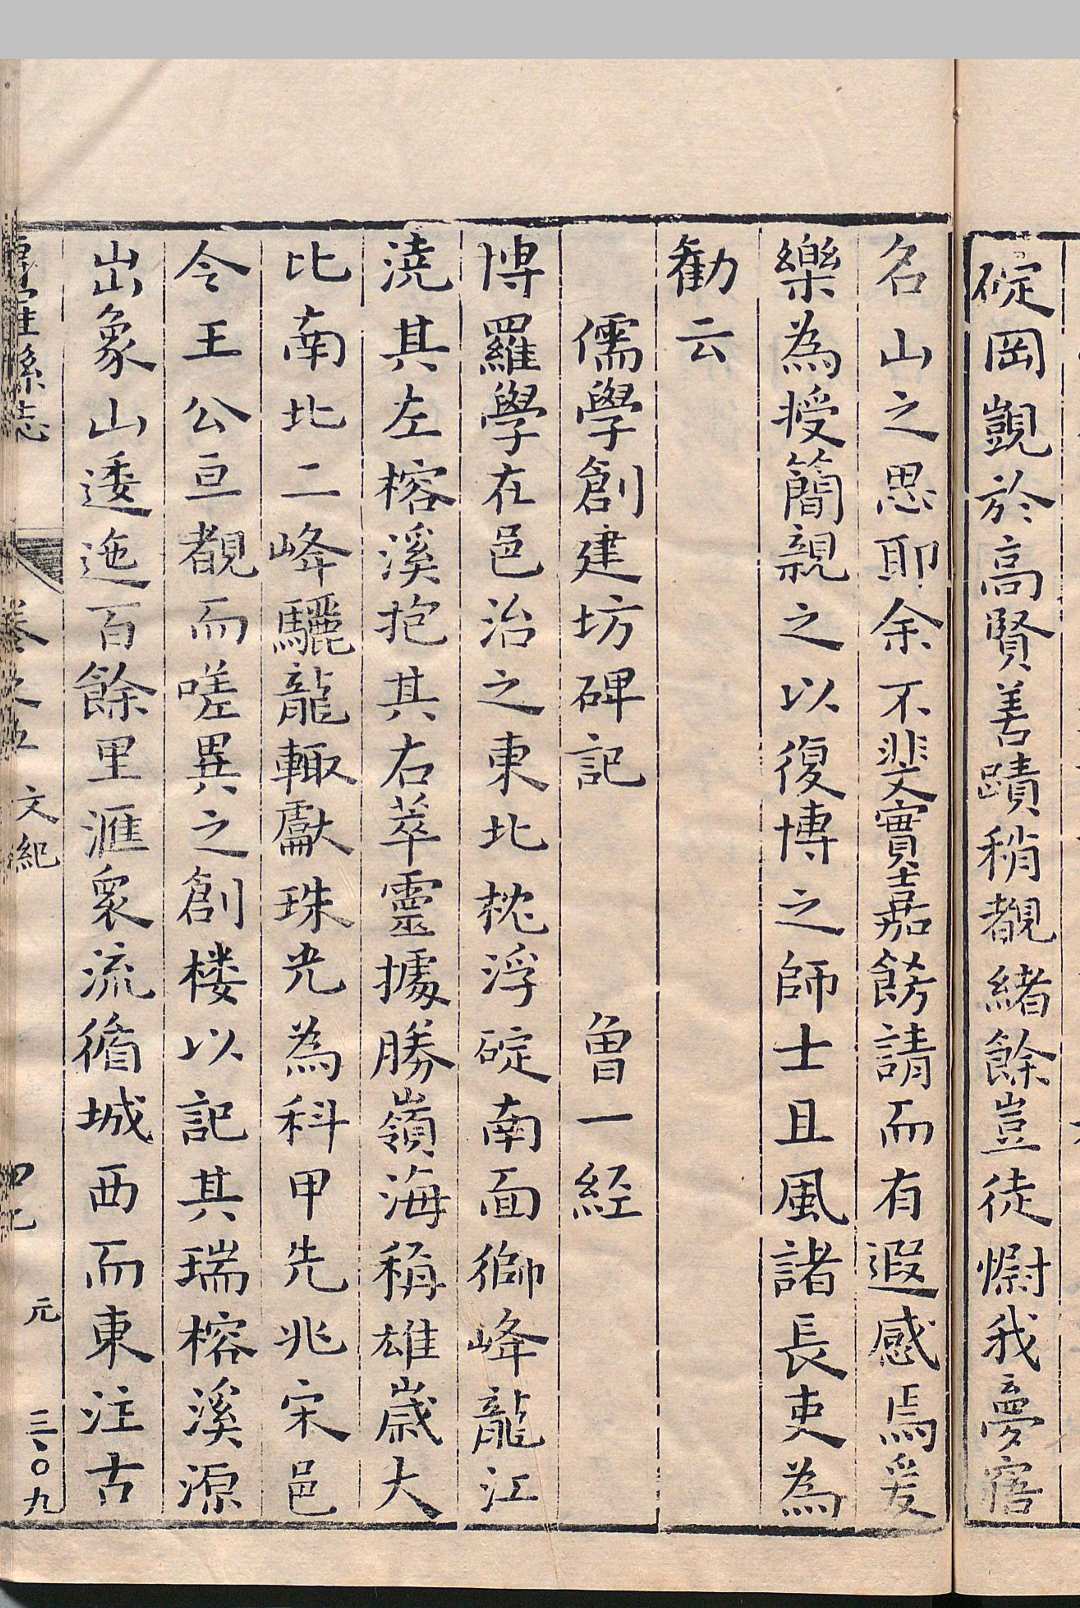 碇岡覬於高賢善蹟稍覩緒餘豈徒慰我夢寤
名山之思耶余不斐實嘉餝請而有遐感焉爰
樂為授簡親之以復博之師士且風諸長吏為
勸云
儒學創建坊碑記 魯一經
博羅學在邑治之東北枕浮碇南面獅峰龍江
澆其左榕溪抱其右萃靈據勝嶺海稱雄歲大
比南北二峰驪龍輙獻珠光為科甲先兆宋邑
令王公亘覩而嗟異之創楼以記其瑞榕溪源
出象山逶迤百餘里滙衆流循城西而東注古
博羅縣志 卷之五 文紀 元 三、〇九